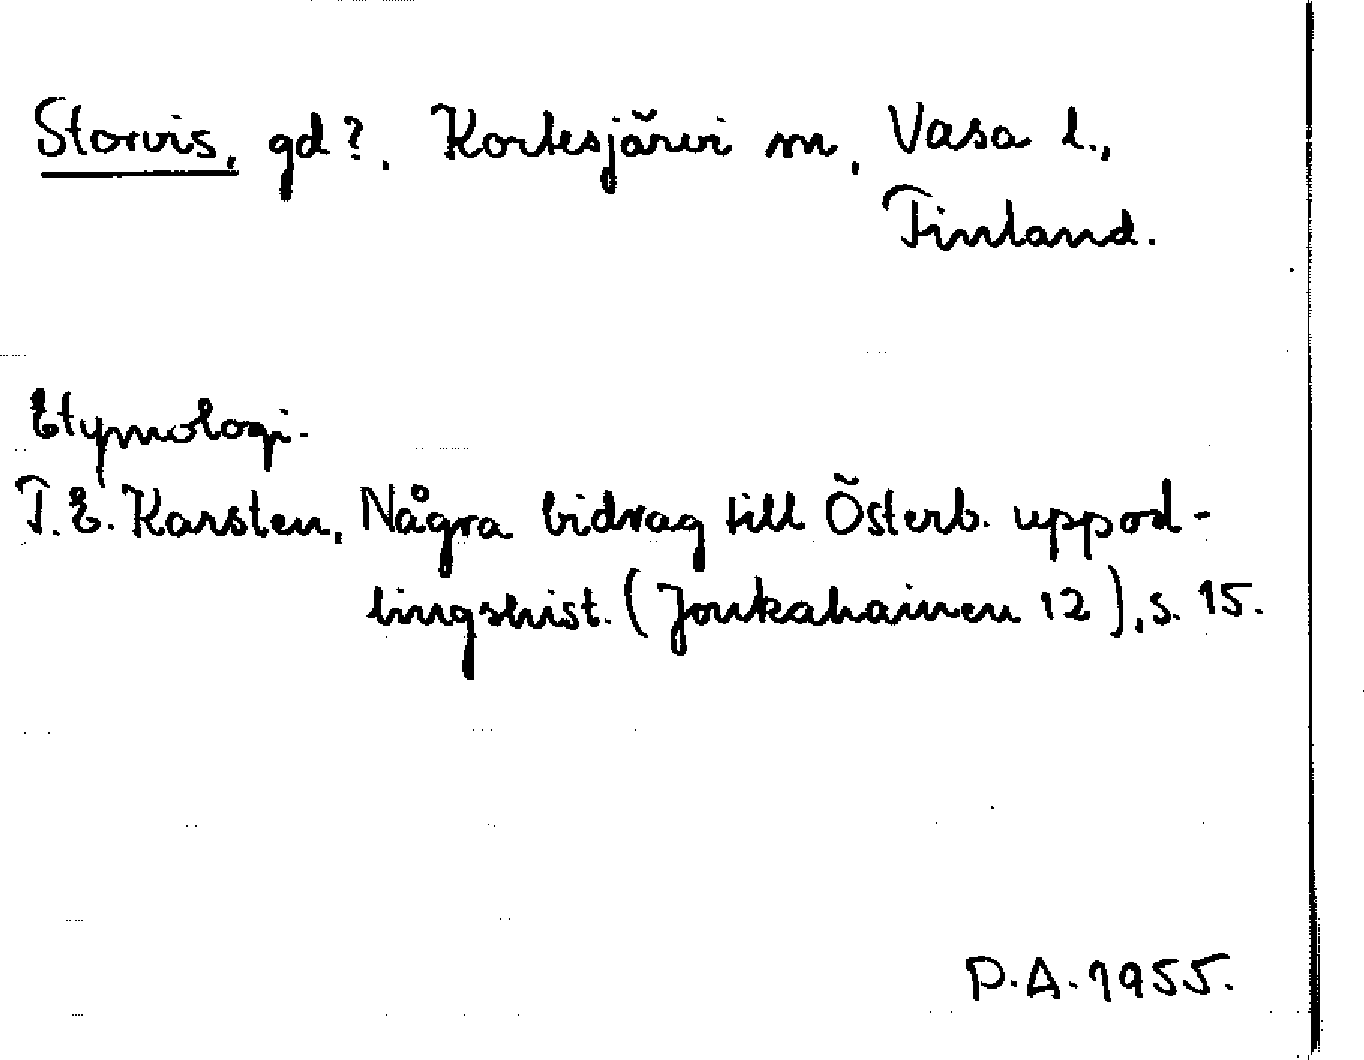 Storvis, gd?, Kortesjärvi sn, Vasa l.,
Finland.
Etymologi.
T. E. Karsten, Några bidrag till Österb. uppod-
lingshist. (Joukahainen 12), s. 15.
P.A. 1955.